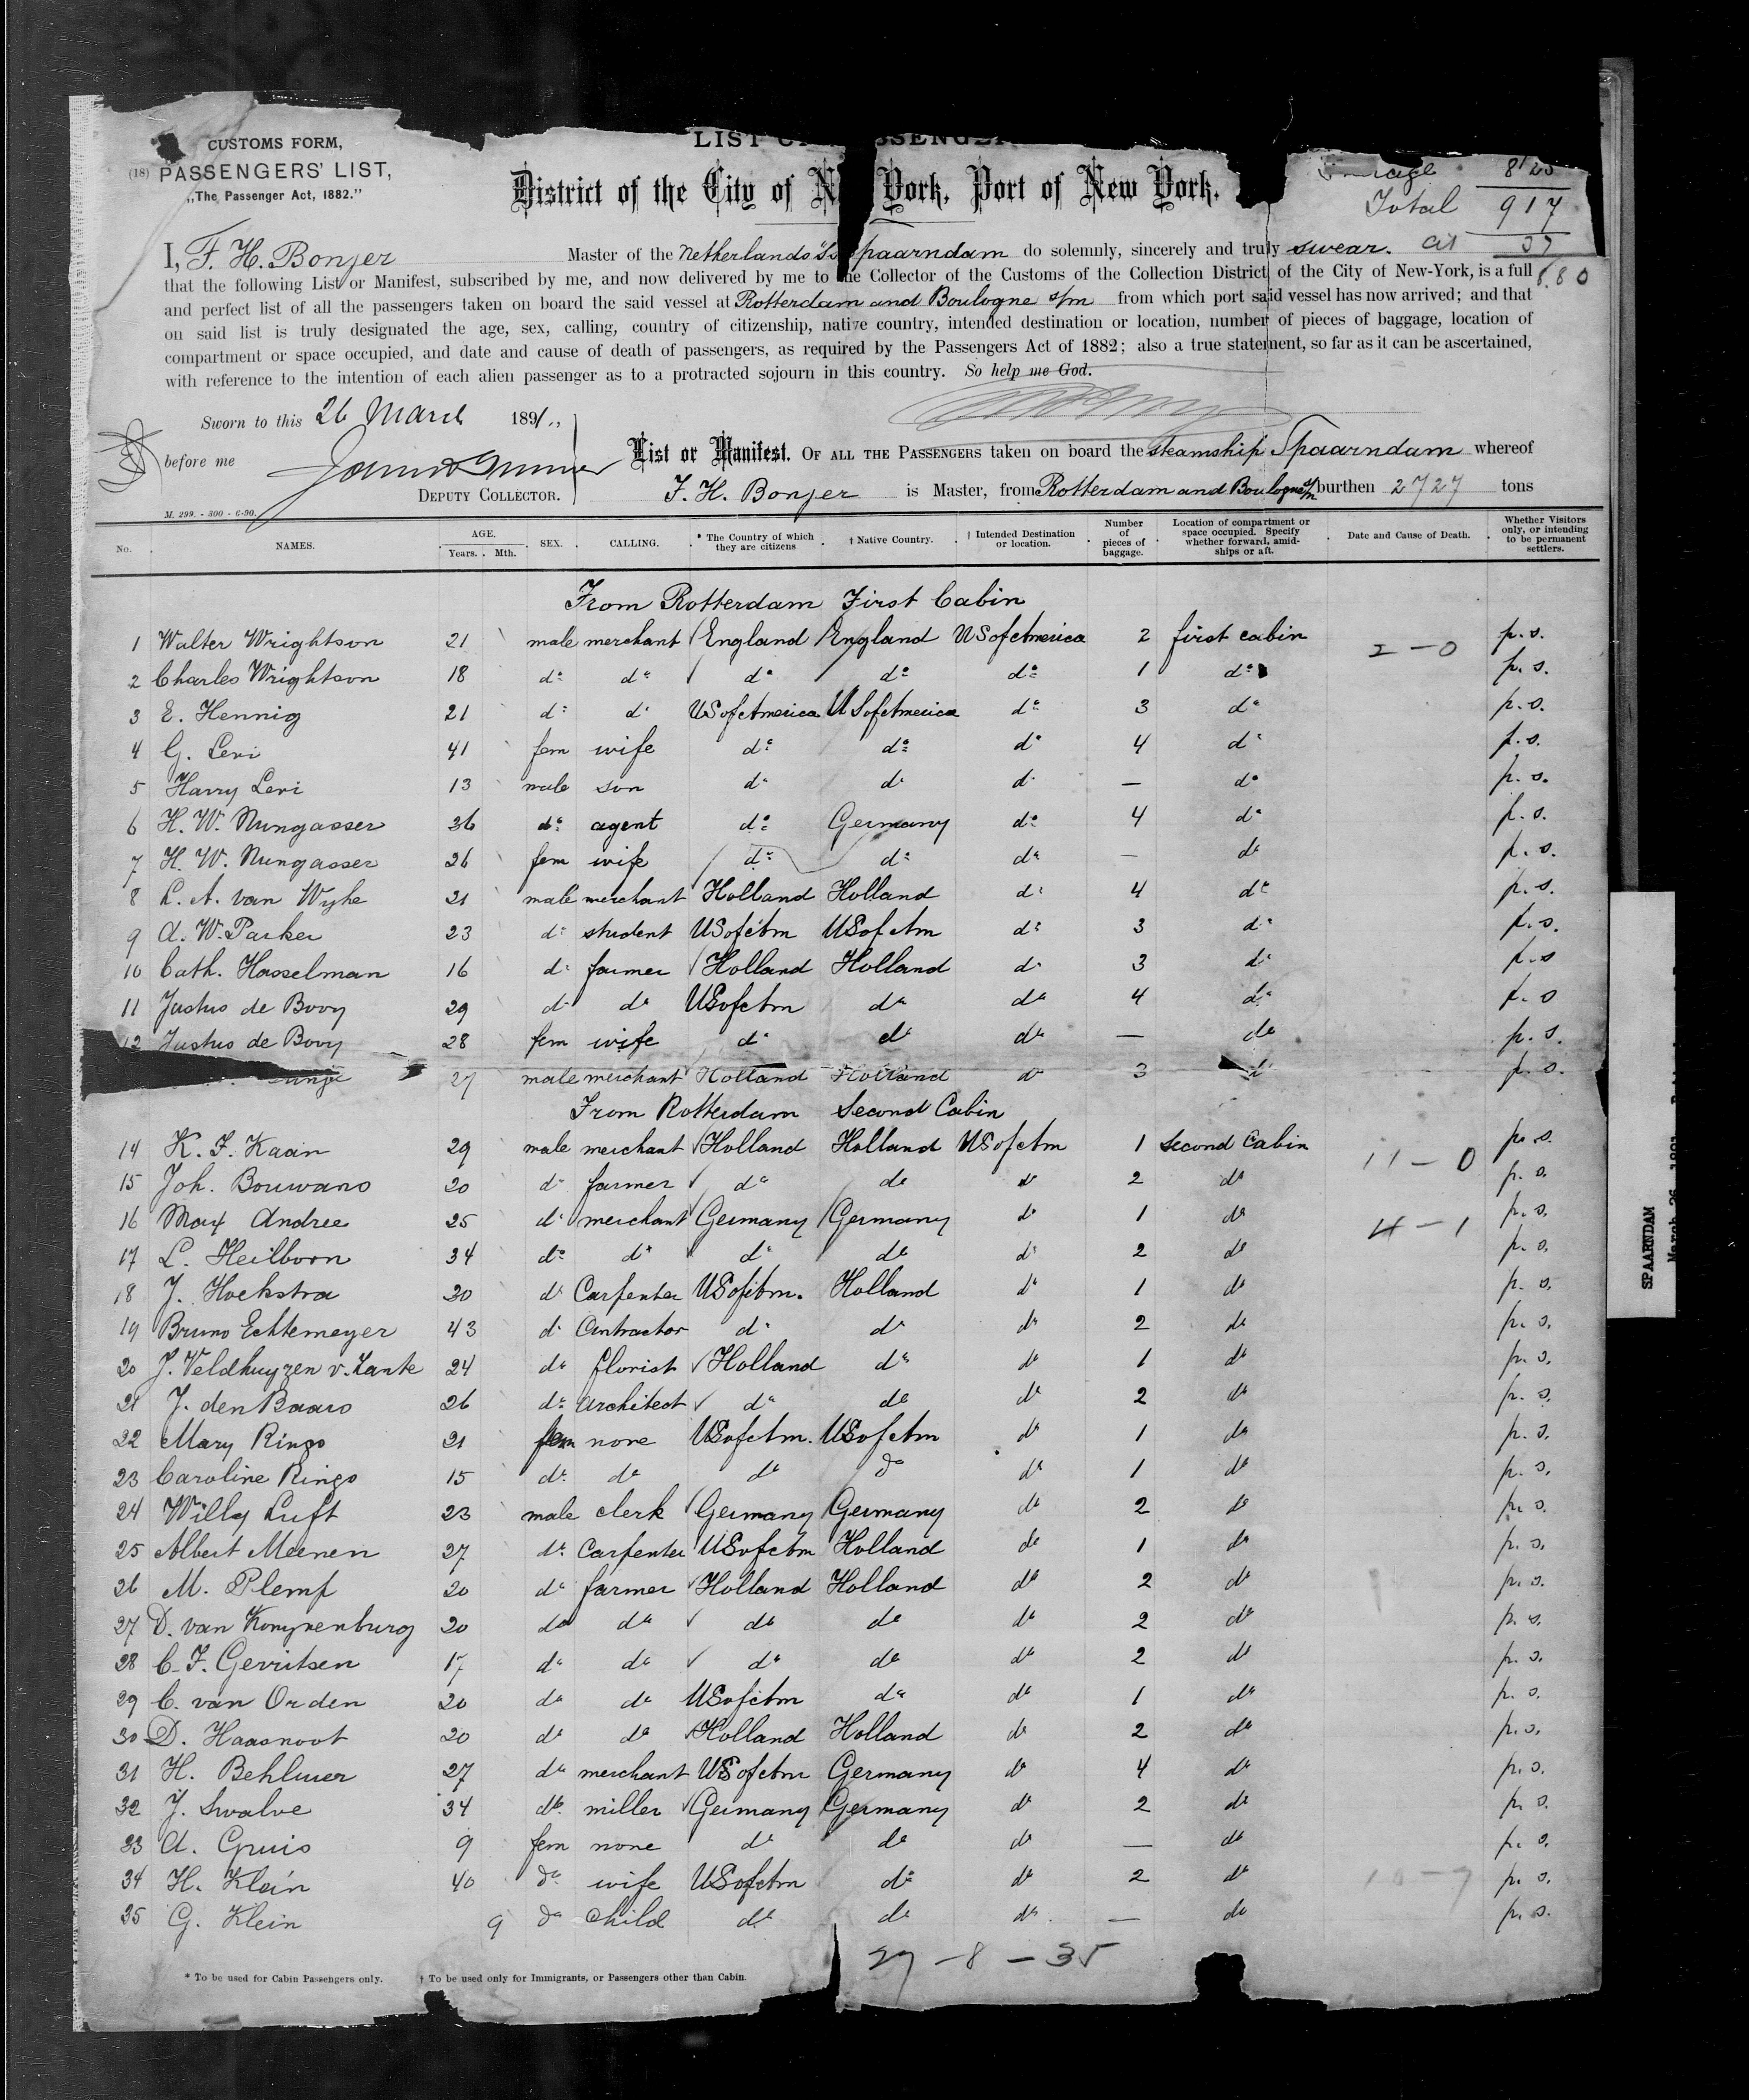 CUSTOMS FORM,
(18) PASSENGERS' LIST,
„The Passenger Act, 1882."
LIST
District of the City of N York, Port of New York.
8123
Total 917
I, F. H. Bonjer Master of the Netherlands S.s. Spaarndam do solemnly, sincerely and truly swear.
that the following List or Manifest, subscribed by me, and now delivered by me to the Collector of the Customs of the Collection District of the City of New-York, is a full
and perfect list of all the passengers taken on board the said vessel at Rotterdam and Boulogne s/m from which port said vessel has now arrived; and that
on said list is truly designated the age, sex, calling, country of citizenship, native country, intended destination or location, number of pieces of baggage, location of
compartment or space occupied, and date and cause of death of passengers, as required by the Passengers Act of 1882; also a true statement, so far as it can be ascertained,
with reference to the intention of each alien passenger as to a protracted sojourn in this country. So help me God.
Sworn to this 26 March 1891.,
before me
DEPUTY COLLECTOR.
M. 299. - 300 - 6-90.
List or Manifest. OF ALL THE PASSENGERS taken on board the steamship Spaarndam whereof
F. H. Bonjer is Master, from Rotterdam and Boulogne s/m burthen 2727 tons
No. NAMES. AGE. Years. Mth. SEX. CALLING. * The Country of which they are citizens † Native Country. † Intended Destination or location. Number of pieces of baggage. Location of compartment or space occupied. Specify whether forward, amidships or aft. Date and Cause of Death. Whether Visitors only, or intending to be permanent settlers.
From Rotterdam First Cabin
1 Walter Wrightson 21 male merchant England England US of America 2 first cabin p. s.
2 Charles Wrightson 18 do do do do do 1 do p. s.
3 E. Hennig 21 do do US of America US of America do 3 do p. s.
4 G. Levi 41 fem wife do do do 4 do p. s.
5 Harry Levi 13 male son do do do — do p. s.
6 H. W. Nungasser 36 do agent do Germany do 4 do p. s.
7 H. W. Nungasser 26 fem wife do do do — do p. s.
8 L. A. van Wyhe 21 male merchant Holland Holland do 4 do p. s.
9 A. W. Parker 23 do student US of Am US of Am do 3 do p. s.
10 Cath. Hasselman 16 do farmer Holland Holland do 3 do p. s
11 Justus de Booy 29 do do US of Am do do 4 do p. s
12 Justus de Booy 28 fem wife do do do — do p. s.
27 male merchant Holland Holland do 3 do p. s.
From Rotterdam Second Cabin
14 K. F. Kaan 29 male merchant Holland Holland US of Am 1 second Cabin 11 – 0 p. s.
15 Joh. Bouwans 20 do farmer do do do 2 do p. s.
16 Max Andree 25 do merchant Germany Germany do 1 do 4 – 1 p. s.
17 L. Heilborn 34 do do do do do 2 do p. s.
18 J. Hoekstra 30 do Carpenter US of Am. Holland do 1 do p. s.
19 Bruno Echtemeyer 43 do Contractor do do do 2 do p. s.
20 J. Veldhuyzen v. Zante 24 do florist Holland do do 1 do p. s.
21 J. den Baars 26 do architect do do do 2 do p. s.
22 Mary Ringo 21 fem none US of Am. US of Am do 1 do p. s.
23 Caroline Ringo 15 do do do do do 1 do p. s.
24 Willy Luft 23 male clerk Germany Germany do 2 do p. s.
25 Albert Meenen 27 do Carpenter US of Am Holland do 1 do p. s.
26 M. Plemp 20 do farmer Holland Holland do 2 do p. s.
27 D. van Konynenburg 20 do do do do do 2 do p. s.
28 C. F. Gerritsen 17 do do do do do 2 do p. s.
29 C. van Orden 20 do do US of Am do do 1 do p. s.
30 D. Haasnoot 20 do do Holland Holland do 2 do p. s.
31 H. Behlmer 27 do merchant US of Am Germany do 4 do p. s.
32 J. Swalve 34 do miller Germany Germany do 2 do p. s.
33 A. Gruis 9 fem none do do do — do p. s.
34 H. Klein 40 do wife US of Am do do 2 do p. s.
35 G. Klein 9 do child do do do — do p. s.
27 – 8 – 35
* To be used for Cabin Passengers only. † To be used only for Immigrants, or Passengers other than Cabin.
SPAARNDAM